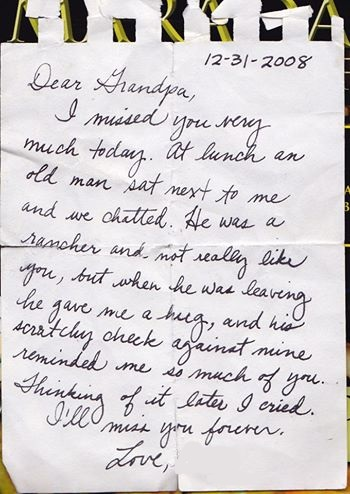 12-31-2008
Dear Grandpa,
I missed you very
much today. At lunch an
old man sat next to me
and we chatted. He was a
rancher and not really like
you, but when he was leaving
he gave me a hug, and his
scratchy check against mine
reminded me so much of you.
Thinking of it later I cried.
I'll miss you forever.
Love,